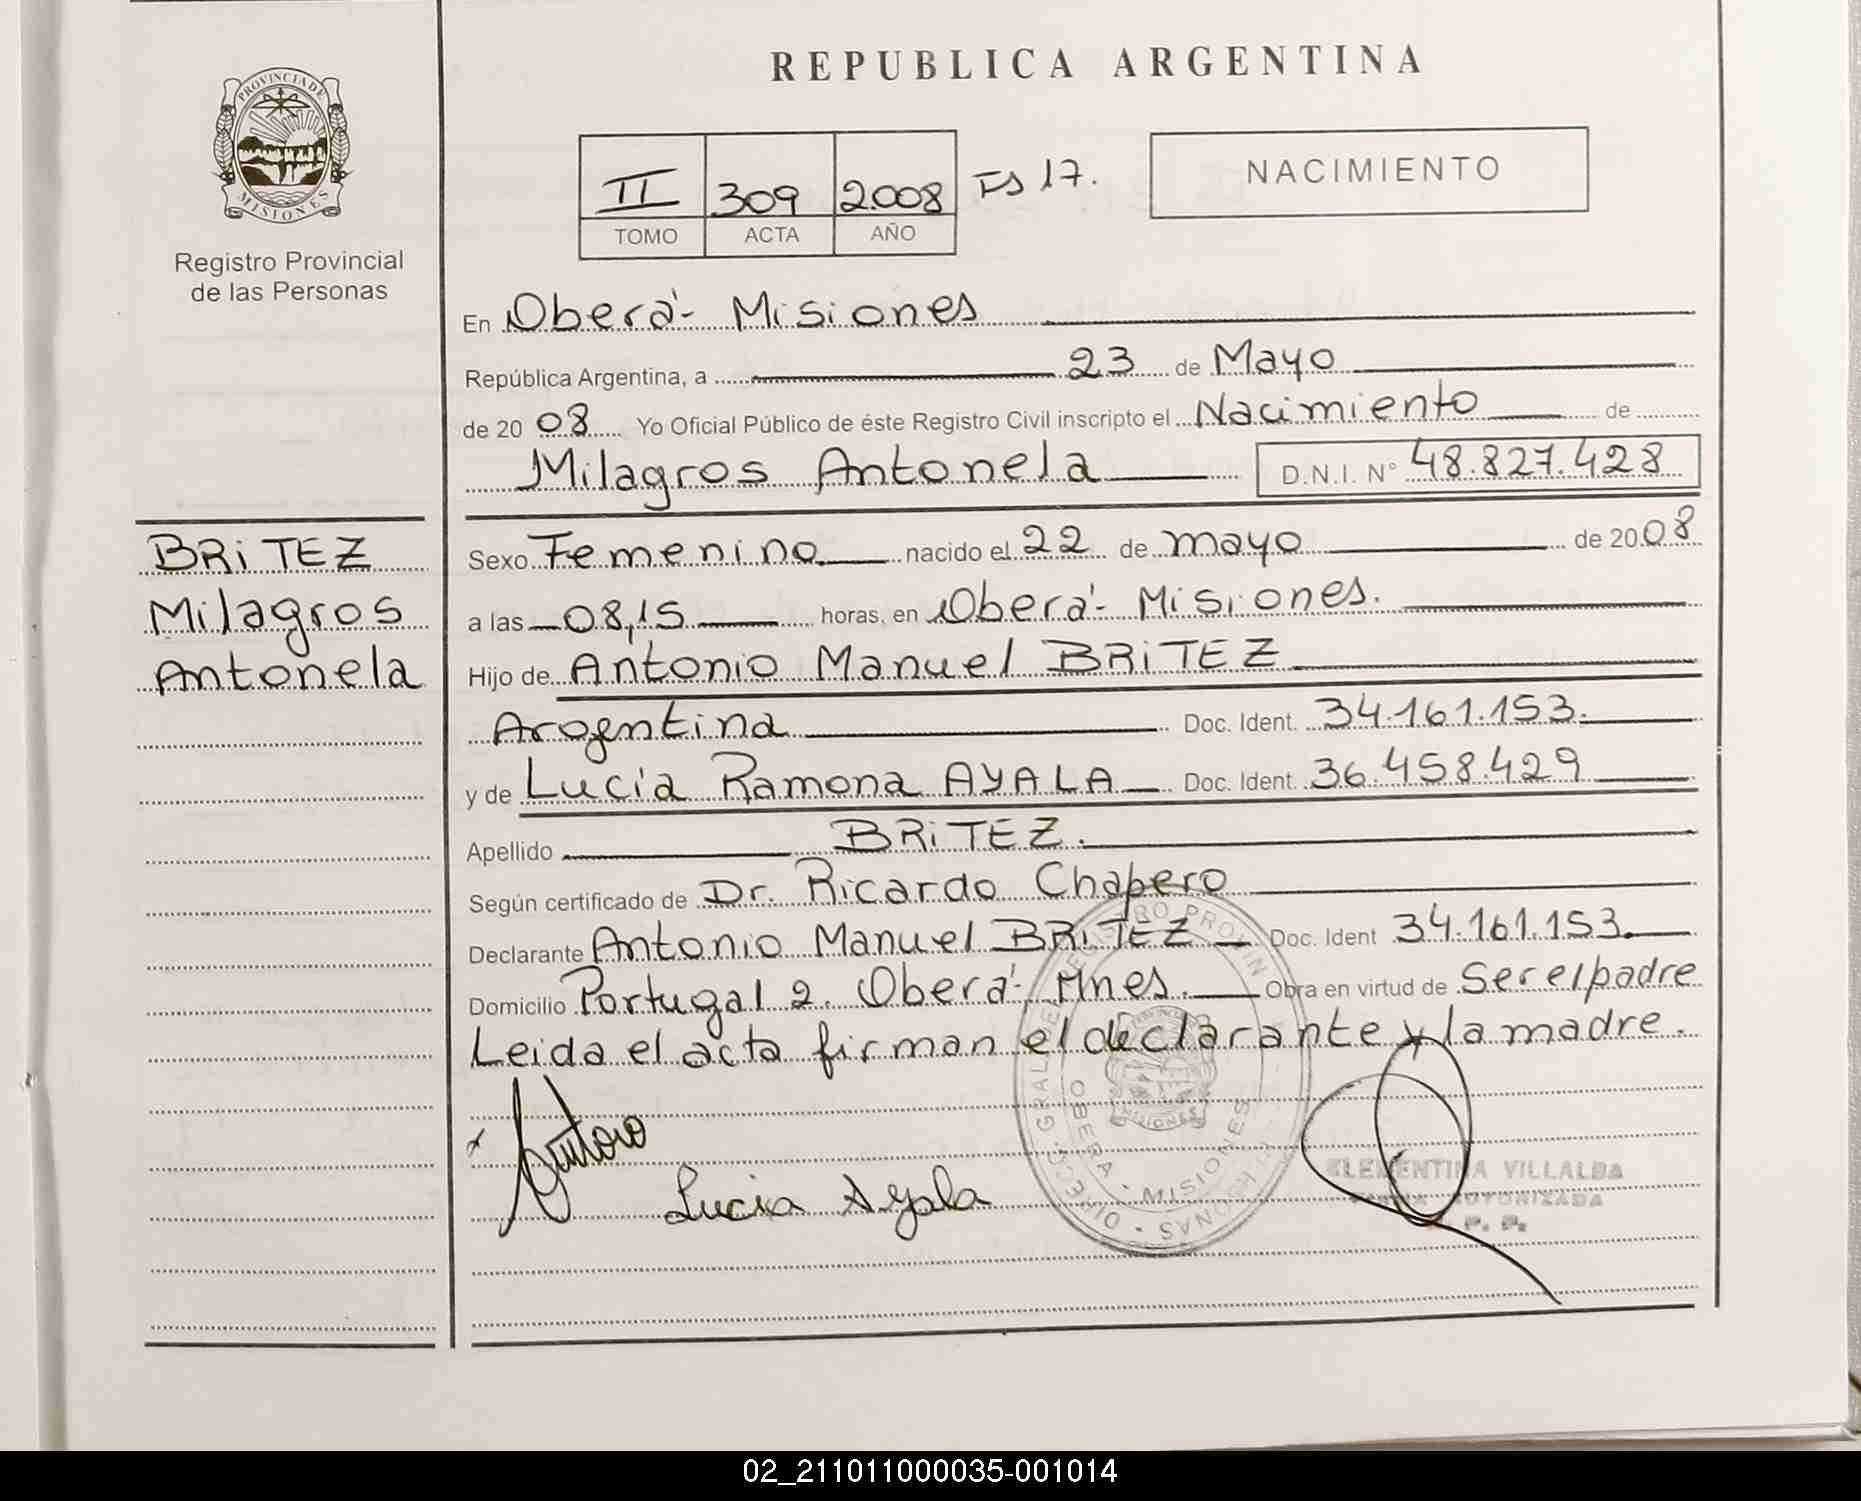 PROVINCIA DE
MISIONES
Registro Provincial
de las Personas
BRITEZ
Milagros
Antonela
REPUBLICA ARGENTINA
II 309 2008 Fs 17.
TOMO ACTA AÑO
NACIMIENTO
En Oberá - Misiones
República Argentina, a 23 de Mayo
de 20 08 Yo Oficial Público de éste Registro Civil inscripto el Nacimiento de
Milagros Antonela D.N.I. N° 48.827.428
Sexo Femenino nacido el 22 de mayo de 2008
a las 08,15 horas, en Oberá - Misiones.
Hijo de Antonio Manuel BRITEZ
Argentina Doc. Ident. 34.161.153.
y de Lucia Ramona AYALA Doc. Ident. 36.458.429
Apellido BRITEZ.
Según certificado de Dr. Ricardo Chapero
Declarante Antonio Manuel BRITEZ Doc. Ident 34.161.153.
Domicilio Portugal 2. Oberá, Mnes. Obra en virtud de Ser el padre
Leida el acta firman el declarante y la madre.
Lucia Ayala
OBERA - MISIONES
MISIONES
CLEMENTINA VILLALBA
FIRMA AUTORIZADA
02_211011000035-001014